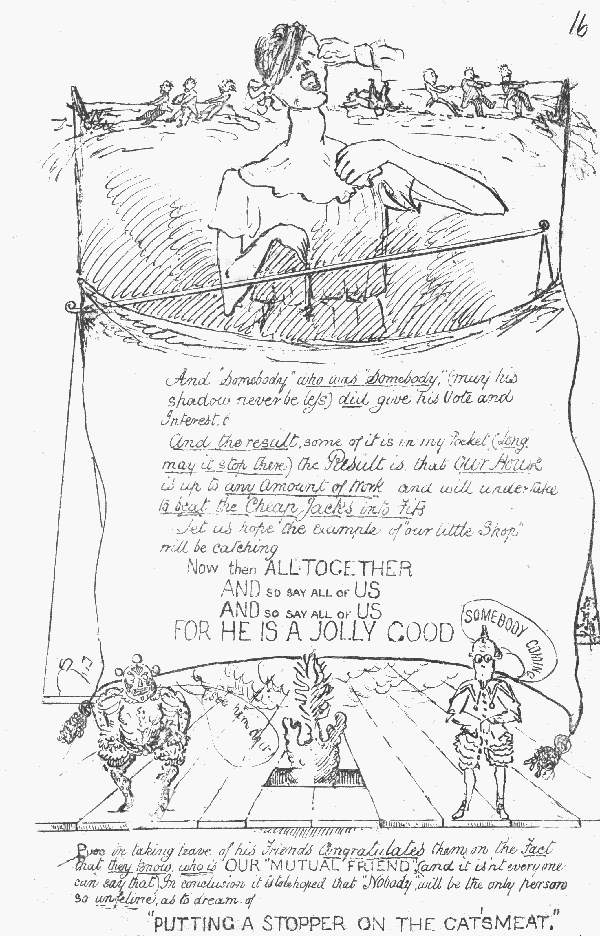 16
And "Somebody" who was "Somebody," (may his
shadow never be less) did give his Vote and
Interest.
And the result, some of it is in my Pocket (long
may it stop there) the Result is, that Our House
is up to any Amount of Work and will undertake
to beat the "Cheap Jacks" into Fits
Let us hope the example of "our little Shop"
will be catching
Now then ALL TOGETHER
AND SO SAY ALL OF US
AND SO SAY ALL OF US
FOR HE IS A JOLLY GOOD
SOMEBODY COMING
Puss in taking leave of his Friends Congratulates them on the Fact
that they know who is OUR "MUTUAL FRIEND" (and it isn't every one
can say that) In conclusion it is to be hoped that "Nobody" will be the only person
so unfeline, as to dream of
"PUTTING A STOPPER ON THE CAT'SMEAT."